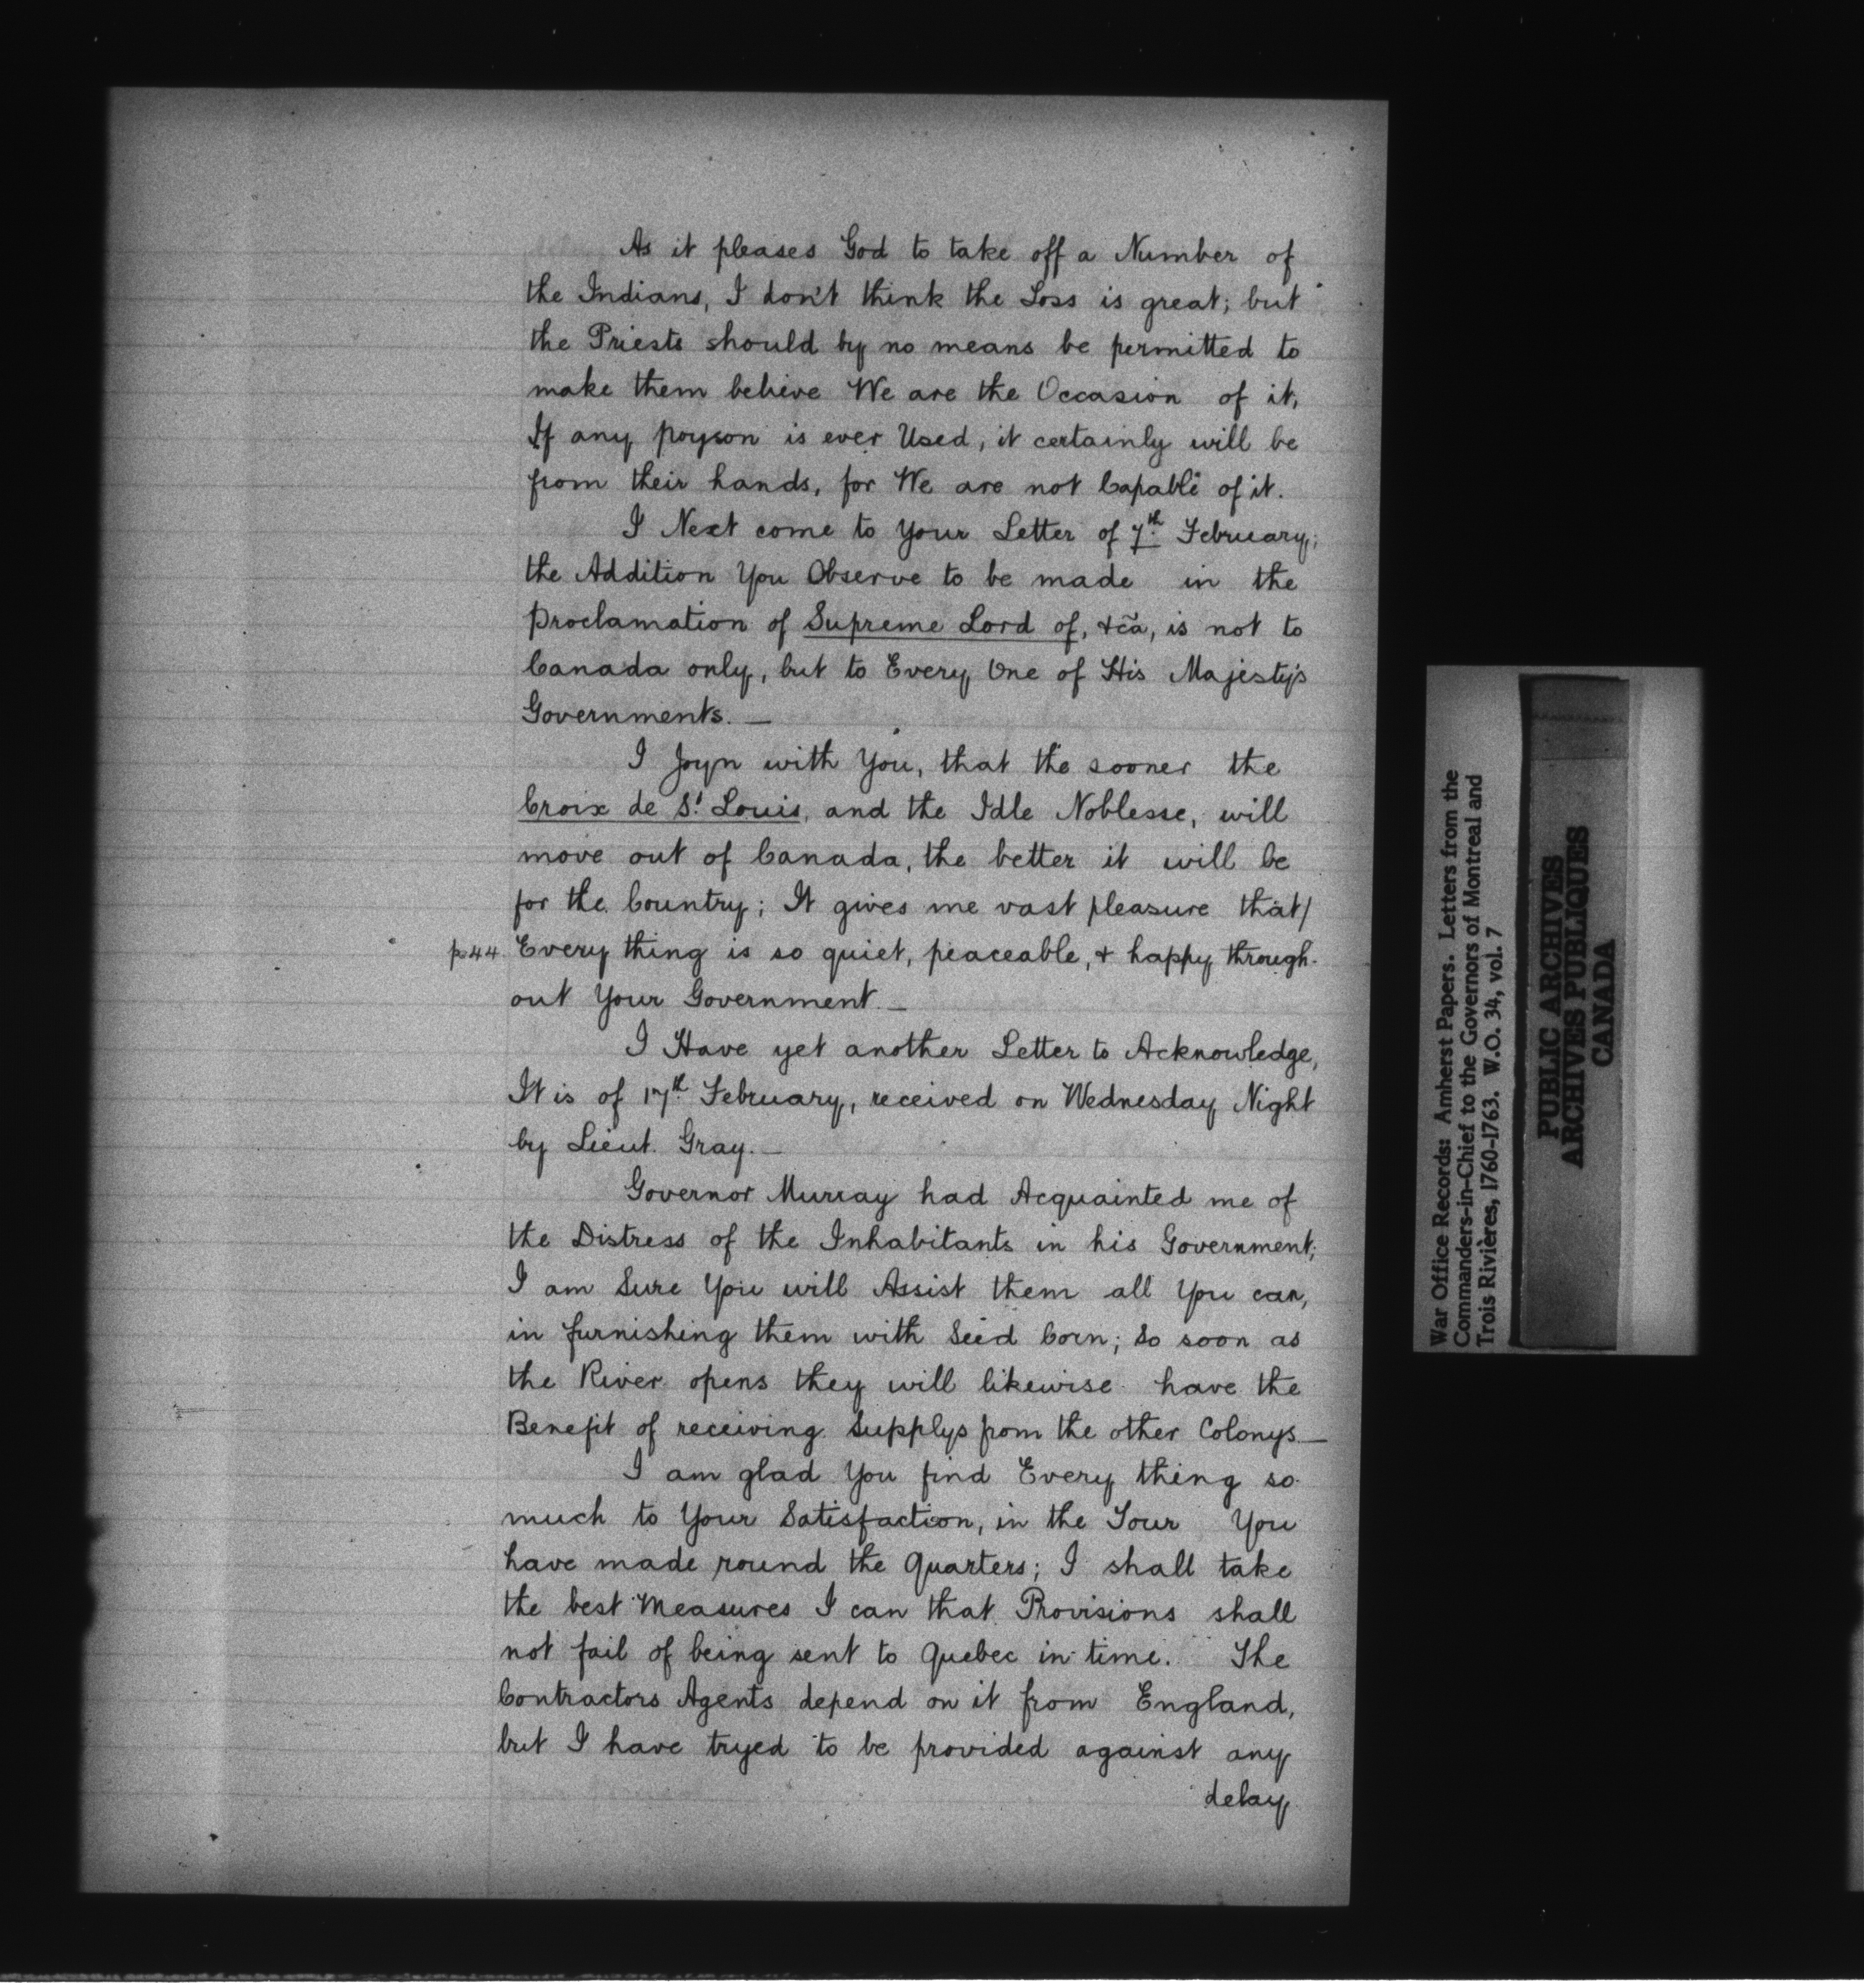 As it pleases God to take off a Number of
the Indians, I don't think the Loss is great; but
the Priests should by no means be permitted to
make them believe We are the Occasion of it,
If any poyson is ever Used, it certainly will be
from their hands, for We are not Capable of it.
I Next come to Your Letter of 7th. February;
the Addition You Observe to be made in the
Proclamation of Supreme Lord of, &ca, is not to
Canada only, but to Every One of His Majesty's
Governments. —
I Joyn with You, that the sooner the
Croix de St. Louis, and the Idle Noblesse, will
move out of Canada, the better it will be
for the Country; It gives me vast pleasure that/
p.44. Every thing is so quiet, peaceable, & happy through-
out Your Government. —
I Have yet another Letter to Acknowledge,
It is of 17th. February, received on Wednesday Night
by Lieut. Gray. —
Governor Murray had Acquainted me of
the Distress of the Inhabitants in his Government;
I am Sure You will Assist them all You can,
in furnishing them with Seed Corn; So soon as
the River opens they will likewise have the
Benefit of receiving Supplys from the other Colonys —
I am glad You find Every thing so
much to Your Satisfaction, in the Tour You
have made round the Quarters; I shall take
the best Measures I can that Provisions shall
not fail of being sent to Quebec in time. The
Contractors Agents depend on it from England,
but I have tryed to be provided against any
delay
War Office Records: Amherst Papers. Letters from the
Commanders-in-Chief to the Governors of Montreal and
Trois Rivières, 1760-1763. W.O. 34, vol. 7
PUBLIC ARCHIVES
ARCHIVES PUBLIQUES
CANADA